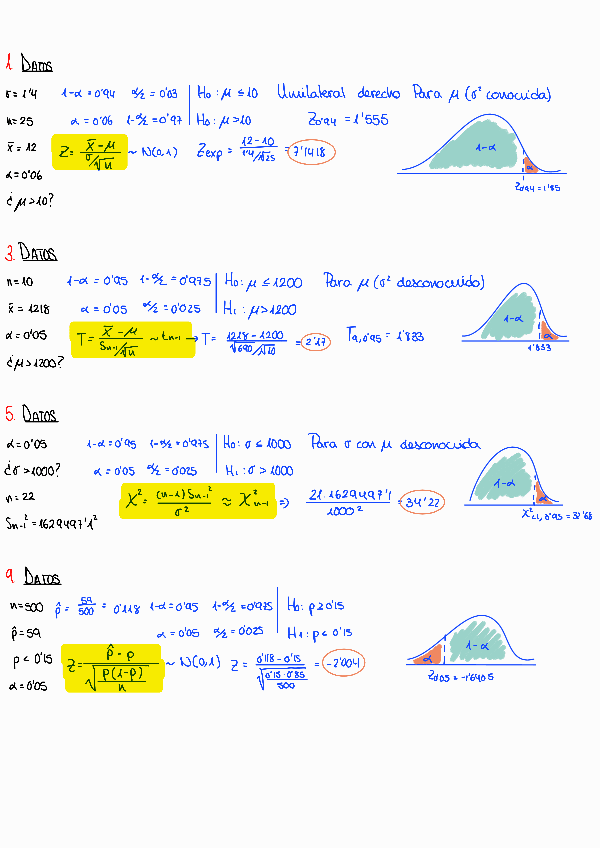 1. DATOS
σ = 1'4 1-α = 0'94 α/2 = 0'03 H0: μ ≤ 10 Unilateral derecho Para μ (σ² conocida)
n = 25 α = 0'06 1-α/2 = 0'97 H0: μ > 10 Z0'94 = 1'555
x̄ = 12 Z = (x̄ - μ)/(σ/√n) ~ N(0,1) Zexp = (12-10)/(1'4/√25) = 7'1418 1-α α
α = 0'06 Z0'94 = 1'85
¿μ > 10?
3. DATOS
n = 10 1-α = 0'95 1-α/2 = 0'975 H0: μ ≤ 1200 Para μ (σ² desconocido)
x̄ = 1218 α = 0'05 α/2 = 0'025 H1: μ > 1200 1-α
α = 0'05 T = (x̄ - μ)/(Sn-1/√n) ~ tn-1 → T = (1218 - 1200)/(√690/√10) = 2'17 T9,0'95 = 1'833 α
¿μ > 1200? 1'833
5. DATOS
α = 0'05 1-α = 0'95 1-α/2 = 0'975 H0: σ ≤ 1000 Para σ con μ desconocida
¿σ > 1000? α = 0'05 α/2 = 0'025 H1: σ > 1000 1-α
n = 22 X² = (n-1)Sn-1²/σ² ≈ X²n-1 => 21·1629497'1/1000² = 34'22 α
Sn-1² = 1629497'1² X²21, 0'95 = 32'68
9. DATOS
n = 500 p̂ = 59/500 = 0'118 1-α = 0'95 1-α/2 = 0'975 H0: p ≥ 0'15
p̂ = 59 α = 0'05 α/2 = 0'025 H1: p < 0'15
p < 0'15 Z = (p̂ - p)/√(p(1-p)/n) ~ N(0,1) Z = (0'118 - 0'15)/√(0'15·0'85/500) = -2'004 α 1-α
α = 0'05 Z0'05 = -1'6405